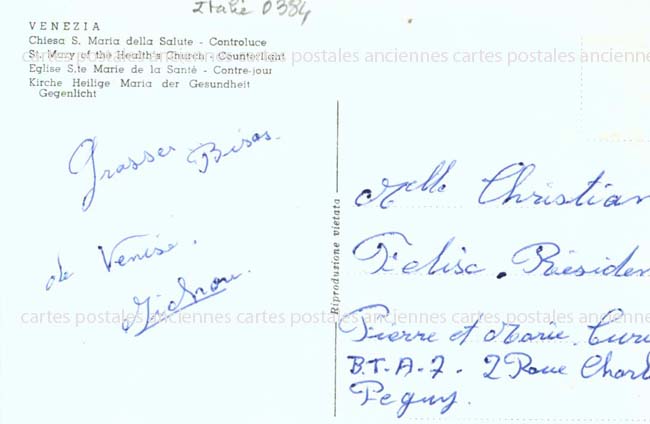 Italie 0384
VENEZIA
Chiesa S. Maria della Salute - Controluce
St. Mary of the Health's Church - Counterlight
Eglise S.te Marie de la Santé - Contre-jour
Kirche Heilige Maria der Gesundheit
Gegenlicht
cartes postales anciennes cartes postales anciennes cartes postales anciennes
Grosses Bisos.
de Venise.
Riproduzione vietata
Melle Christian
Felise. Résiden
Pierre et Marie. Curi
B.T.A-7. 2 Roue Charl
Peguy.
cartes postales anciennes cartes postales anciennes cartes postales anciennes